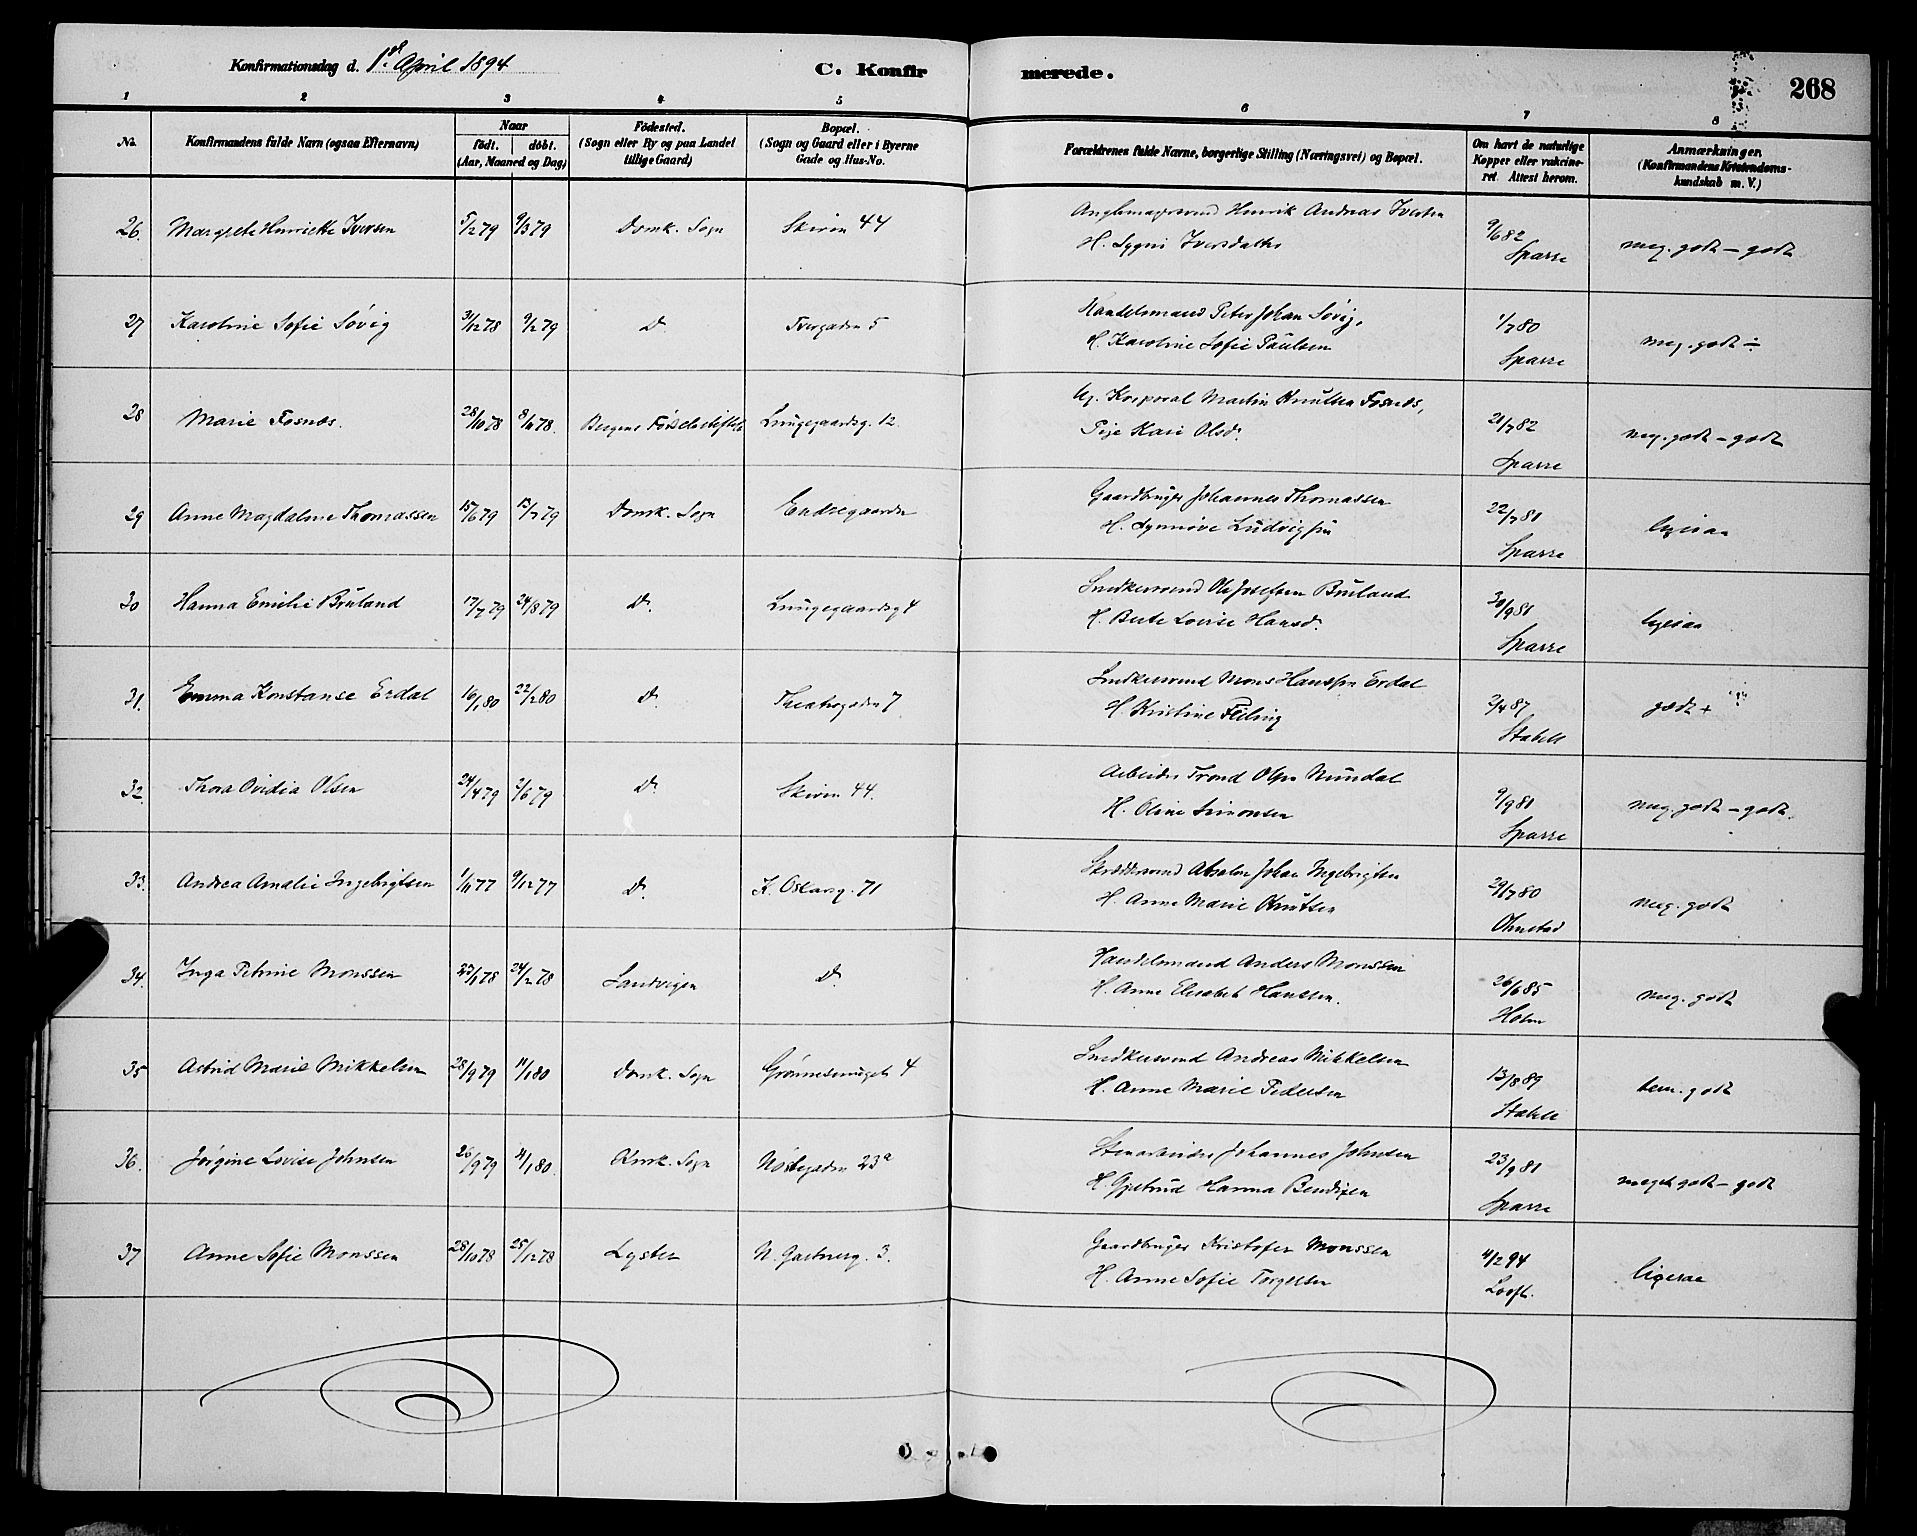 Konfirmationsdag d. 1ste April 1894
C. Konfirmerede.
268
1 2 3 4 5 6 7 8
No. Konfirmandens fulde Navn (ogsaa Efternavn) Naar födt. döbt. (Aar, Maaned og Dag) Födested. (Sogn eller By og paa Landet tillige Gaard) Bopæl. (Sogn og Gaard eller i Byerne Gade og Hus-No. Forældrenes fulde Navne, borgerlige Stilling (Næringsvei) og Bopæl. Om havt de naturlige Kopper eller vakcineret. Attest herom. Anmærkninger. (Konfirmandens Kristendomskundskab m. V.)
26. Margrete Henriette Iversen 5/2 79 9/3 79 Domk. Sogn Skiven 44 Henrik Andreas Iversen 9/6 82 meg. godt - godt
H. Iversdatter Sparre
27 Karoline Sofie Søvig 31/12 78 9/2 79 Do Tvergaden 5 Handelsmand Peter Johan Søvig, 1/7 80 meg. godt ÷
H. Karoline Sofie Paulsen Sparre
28 Marie Fosnæs. 28/10 78 8/11 78. Bergens Fødselsstiftelse Lungegaardsg. 12. Ug. Korporal Martin Knutsen Fosnæs, 21/7 82 meg. godt - godt
Pige Kari Olsdr. Sparre
29 Anne Magdalene Thomassen 15/6 79 13/7 79 Domk. Sogn Endregaarden Gaardbruger Johannes Thomassen 22/7 81 ligesaa
H. Synnøve Ludvigsen Sparre
30 Hanna Emilie Bruland 17/7 79 24/8 79 Do. Lungegaardsg 4 Snedkersvend Ole Josefsen Bruland 30/9 81 ligesaa
H. Berte Lovise Hansd. Sparre
31. Emma Konstanse Erdal 16/1 80 22/2 80 Do Theatergaden 7 Snedkersvend Mons Hanssen Erdal 2/4 87 godt +
H. Kristine Stabell
32. Thora Ovidia Olsen 24/4 79 2/6 79 Do. Skiven 44. Arbeider Trond Olsen Nundal 9/9 81 meg. godt - godt.
H. Oline Simonsen Sparre
33. Andrea Amalie Ingebrigtsen 1/11 77 9/12 77 Do. K. Oskarsg. 71 Absalon Johan Ingebrigtsen 29/7 80 meg. godt
H. Anne Marie Knutsen Ohnstad
34. Inga Petrine Monssen 23/1 78 24/2 78 Sandvigen Do. Handelsmand Anders Monssen 26/6 85 meg. godt
H. Anne Elisabet Hanssen. Holm
35 Astrid Marie Mikkelsen 28/9 79 11/1 80 Domk. Sogn Grønnesmuget 4 Snedkersvend Andreas Mikkelsen 13/8 89 tem. godt
H. Anne Marie Pedersen Stabell
36. Jørgine Lovise Johnsen 26/9 79 4/1 80. Sogn Nøstegaden 23a Stenarbeider Johannes Johnsen 23/9 81 meget godt - godt
H. Gjertrud Hanna Bendixen Sparre
37 Anne Sofie Monssen 28/10 78 25/12 78 Lyster N. Gartnerg. 3. Gaardbruger Kristofer Monssen 4/2 94 ligesaa
H. Anne Sofie Torgersen Looft.